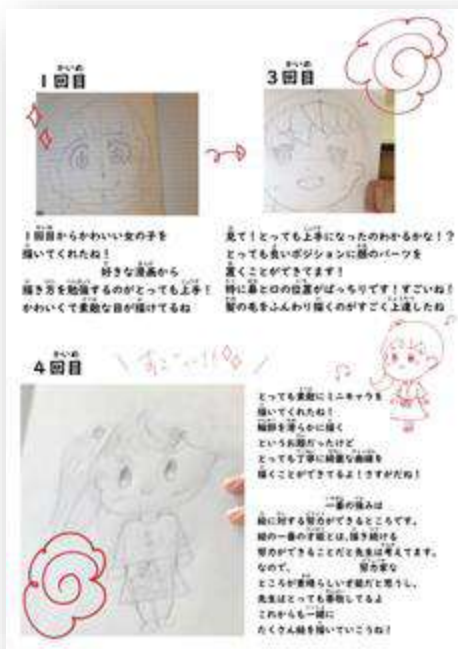 かいめ
1回目
かいめ
3回目
1回目からかわいい女の子を
描いてくれたね!
好きな漫画から
描き方を勉強するのがとっても上手!
かわいくて素敵な目が描けてるね
見て!とっても上手になったのわかるかな!?
とっても良いポジションに顔のパーツを
置くことができてます!
特に鼻と口の位置がばっちりです!すごいね!
髪の毛をふんわり描くのがすごく上達したね
かいめ
4回目
すご〜い!!
とっても素敵にミニキャラを
描いてくれたね!
輪郭を滑らかに描く
というお題だったけど
とっても丁寧に綺麗な曲線を
描くことができてるよ!さすがだね!
一番の強みは
絵に対する努力ができるところです。
絵の一番の才能とは、描き続ける
努力ができることだと先生は考えてます。
なので、
努力家な
ところが素晴らしい才能だと思うし、
先生はとっても尊敬してるよ
これからも一緒に
たくさん絵を描いていこうね!